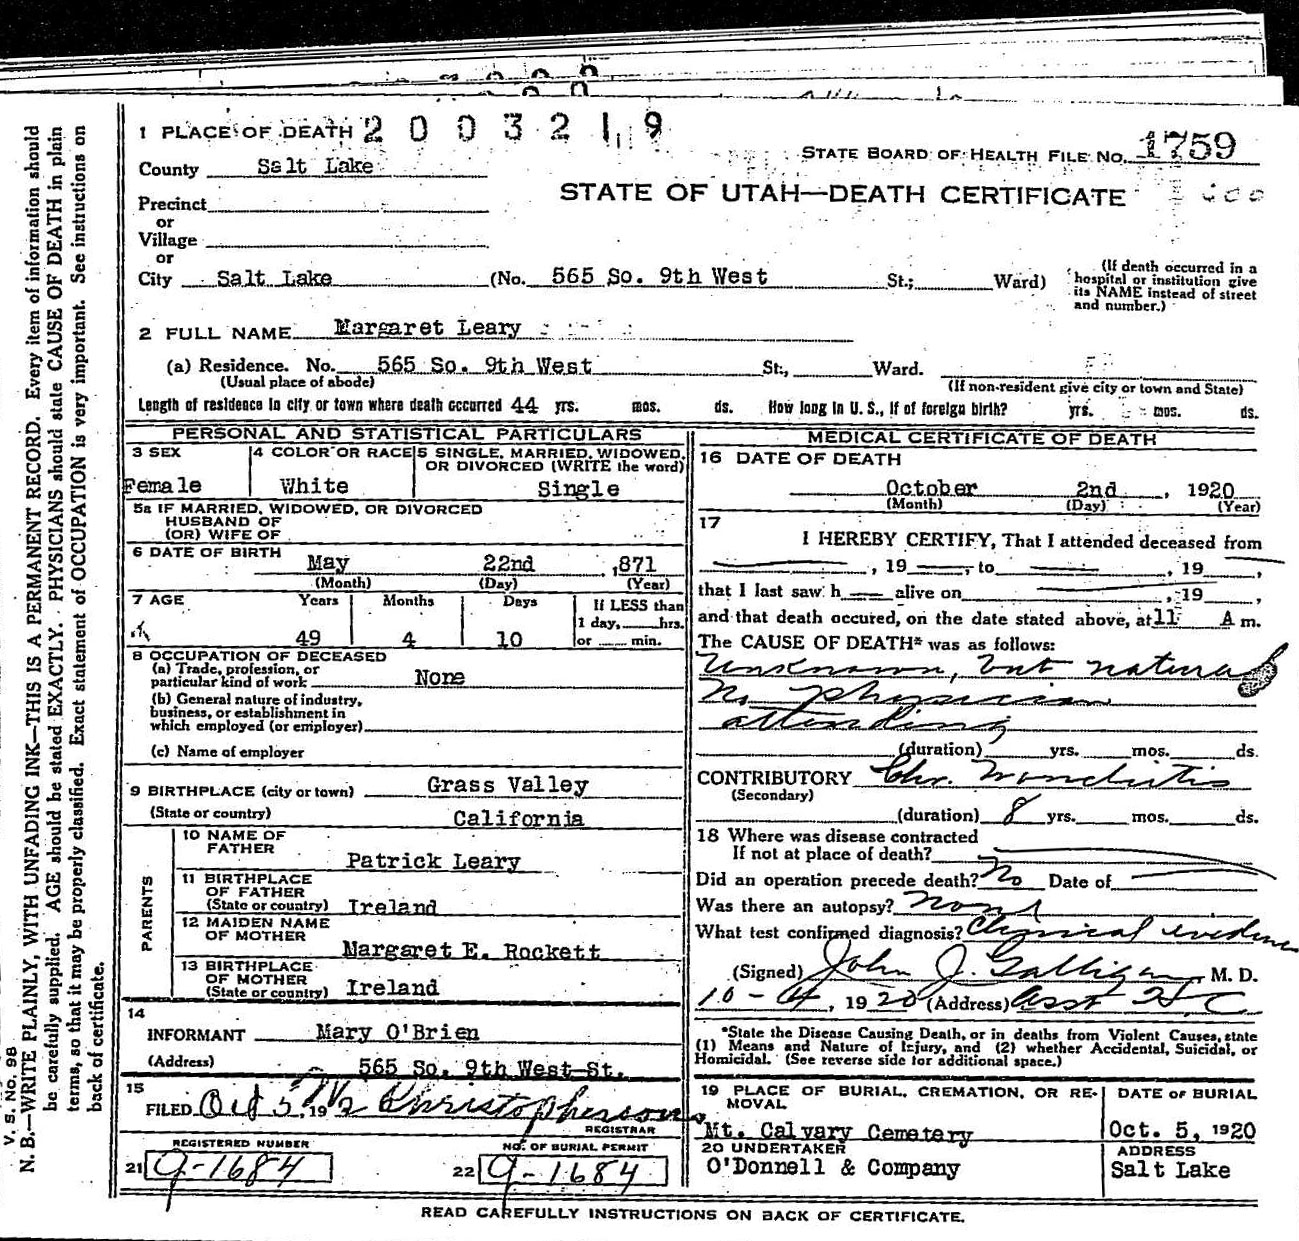 1 PLACE OF DEATH 2003219
STATE BOARD OF HEALTH FILE NO. 1759
County Salt Lake
STATE OF UTAH—DEATH CERTIFICATE
Precinct
or
Village
or
City Salt Lake (No. 565 So. 9th West St.; Ward)
(If death occurred in a
hospital or institution give
its NAME instead of street
and number.)
2 FULL NAME Margaret Leary
(a) Residence. No. 565 So. 9th West St., Ward.
(Usual place of abode) (If non-resident give city or town and State)
Length of residence in city or town where death occurred 44 yrs. mos. ds. How long in U. S., if of foreign birth? yrs. mos. ds.
PERSONAL AND STATISTICAL PARTICULARS
3 SEX 4 COLOR OR RACE 5 SINGLE, MARRIED, WIDOWED,
OR DIVORCED (WRITE the word)
Female White Single
5a IF MARRIED, WIDOWED, OR DIVORCED
HUSBAND OF
(OR) WIFE OF
6 DATE OF BIRTH May 22nd ,871
(Month) (Day) (Year)
7 AGE Years Months Days If LESS than
1 day, hrs.
49 4 10 or min.
8 OCCUPATION OF DECEASED
(a) Trade, profession, or
particular kind of work None
(b) General nature of industry,
business, or establishment in
which employed (or employer)
(c) Name of employer
9 BIRTHPLACE (city or town) Grass Valley
(State or country) California
PARENTS
10 NAME OF
FATHER Patrick Leary
11 BIRTHPLACE
OF FATHER
(State or country) Ireland
12 MAIDEN NAME
OF MOTHER Margaret E. Rockett
13 BIRTHPLACE
OF MOTHER
(State or country) Ireland
14
INFORMANT Mary O'Brien
(Address) 565 So. 9th West St.
15
FILED Oct 5, 19 Christopherson
REGISTRAR
REGISTERED NUMBER NO. OF BURIAL PERMIT
21 9-1684 22 9-1684
MEDICAL CERTIFICATE OF DEATH
16 DATE OF DEATH
October 2nd , 1920
(Month) (Day) (Year)
17
I HEREBY CERTIFY, That I attended deceased from
, 19 , to , 19 ,
that I last saw h alive on , 19 ,
and that death occured, on the date stated above, at 11 A m.
The CAUSE OF DEATH* was as follows:
Unknown, but natural
No physician
attending
(duration) yrs. mos. ds.
CONTRIBUTORY Chr. Bronchitis
(Secondary)
(duration) 8 yrs. mos. ds.
18 Where was disease contracted
If not at place of death?
Did an operation precede death? No Date of
Was there an autopsy? None
What test confirmed diagnosis? Clinical evidence
(Signed) John J. Galligan, M. D.
10-4, 1920 (Address) Asst H C
*State the Disease Causing Death, or in deaths from Violent Causes, state
(1) Means and Nature of Injury, and (2) whether Accidental, Suicidal, or
Homicidal. (See reverse side for additional space.)
19 PLACE OF BURIAL, CREMATION, OR RE-
MOVAL
Mt. Calvary Cemetery
DATE OF BURIAL
Oct. 5, 1920
20 UNDERTAKER
O'Donnell & Company
ADDRESS
Salt Lake
READ CAREFULLY INSTRUCTIONS ON BACK OF CERTIFICATE.
V. S. No. 98
N. B.—WRITE PLAINLY, WITH UNFADING INK—THIS IS A PERMANENT RECORD. Every item of information should
be carefully supplied. AGE should be stated EXACTLY. PHYSICIANS should state CAUSE OF DEATH in plain
terms, so that it may be properly classified. Exact statement of OCCUPATION is very important. See instructions on
back of certificate.